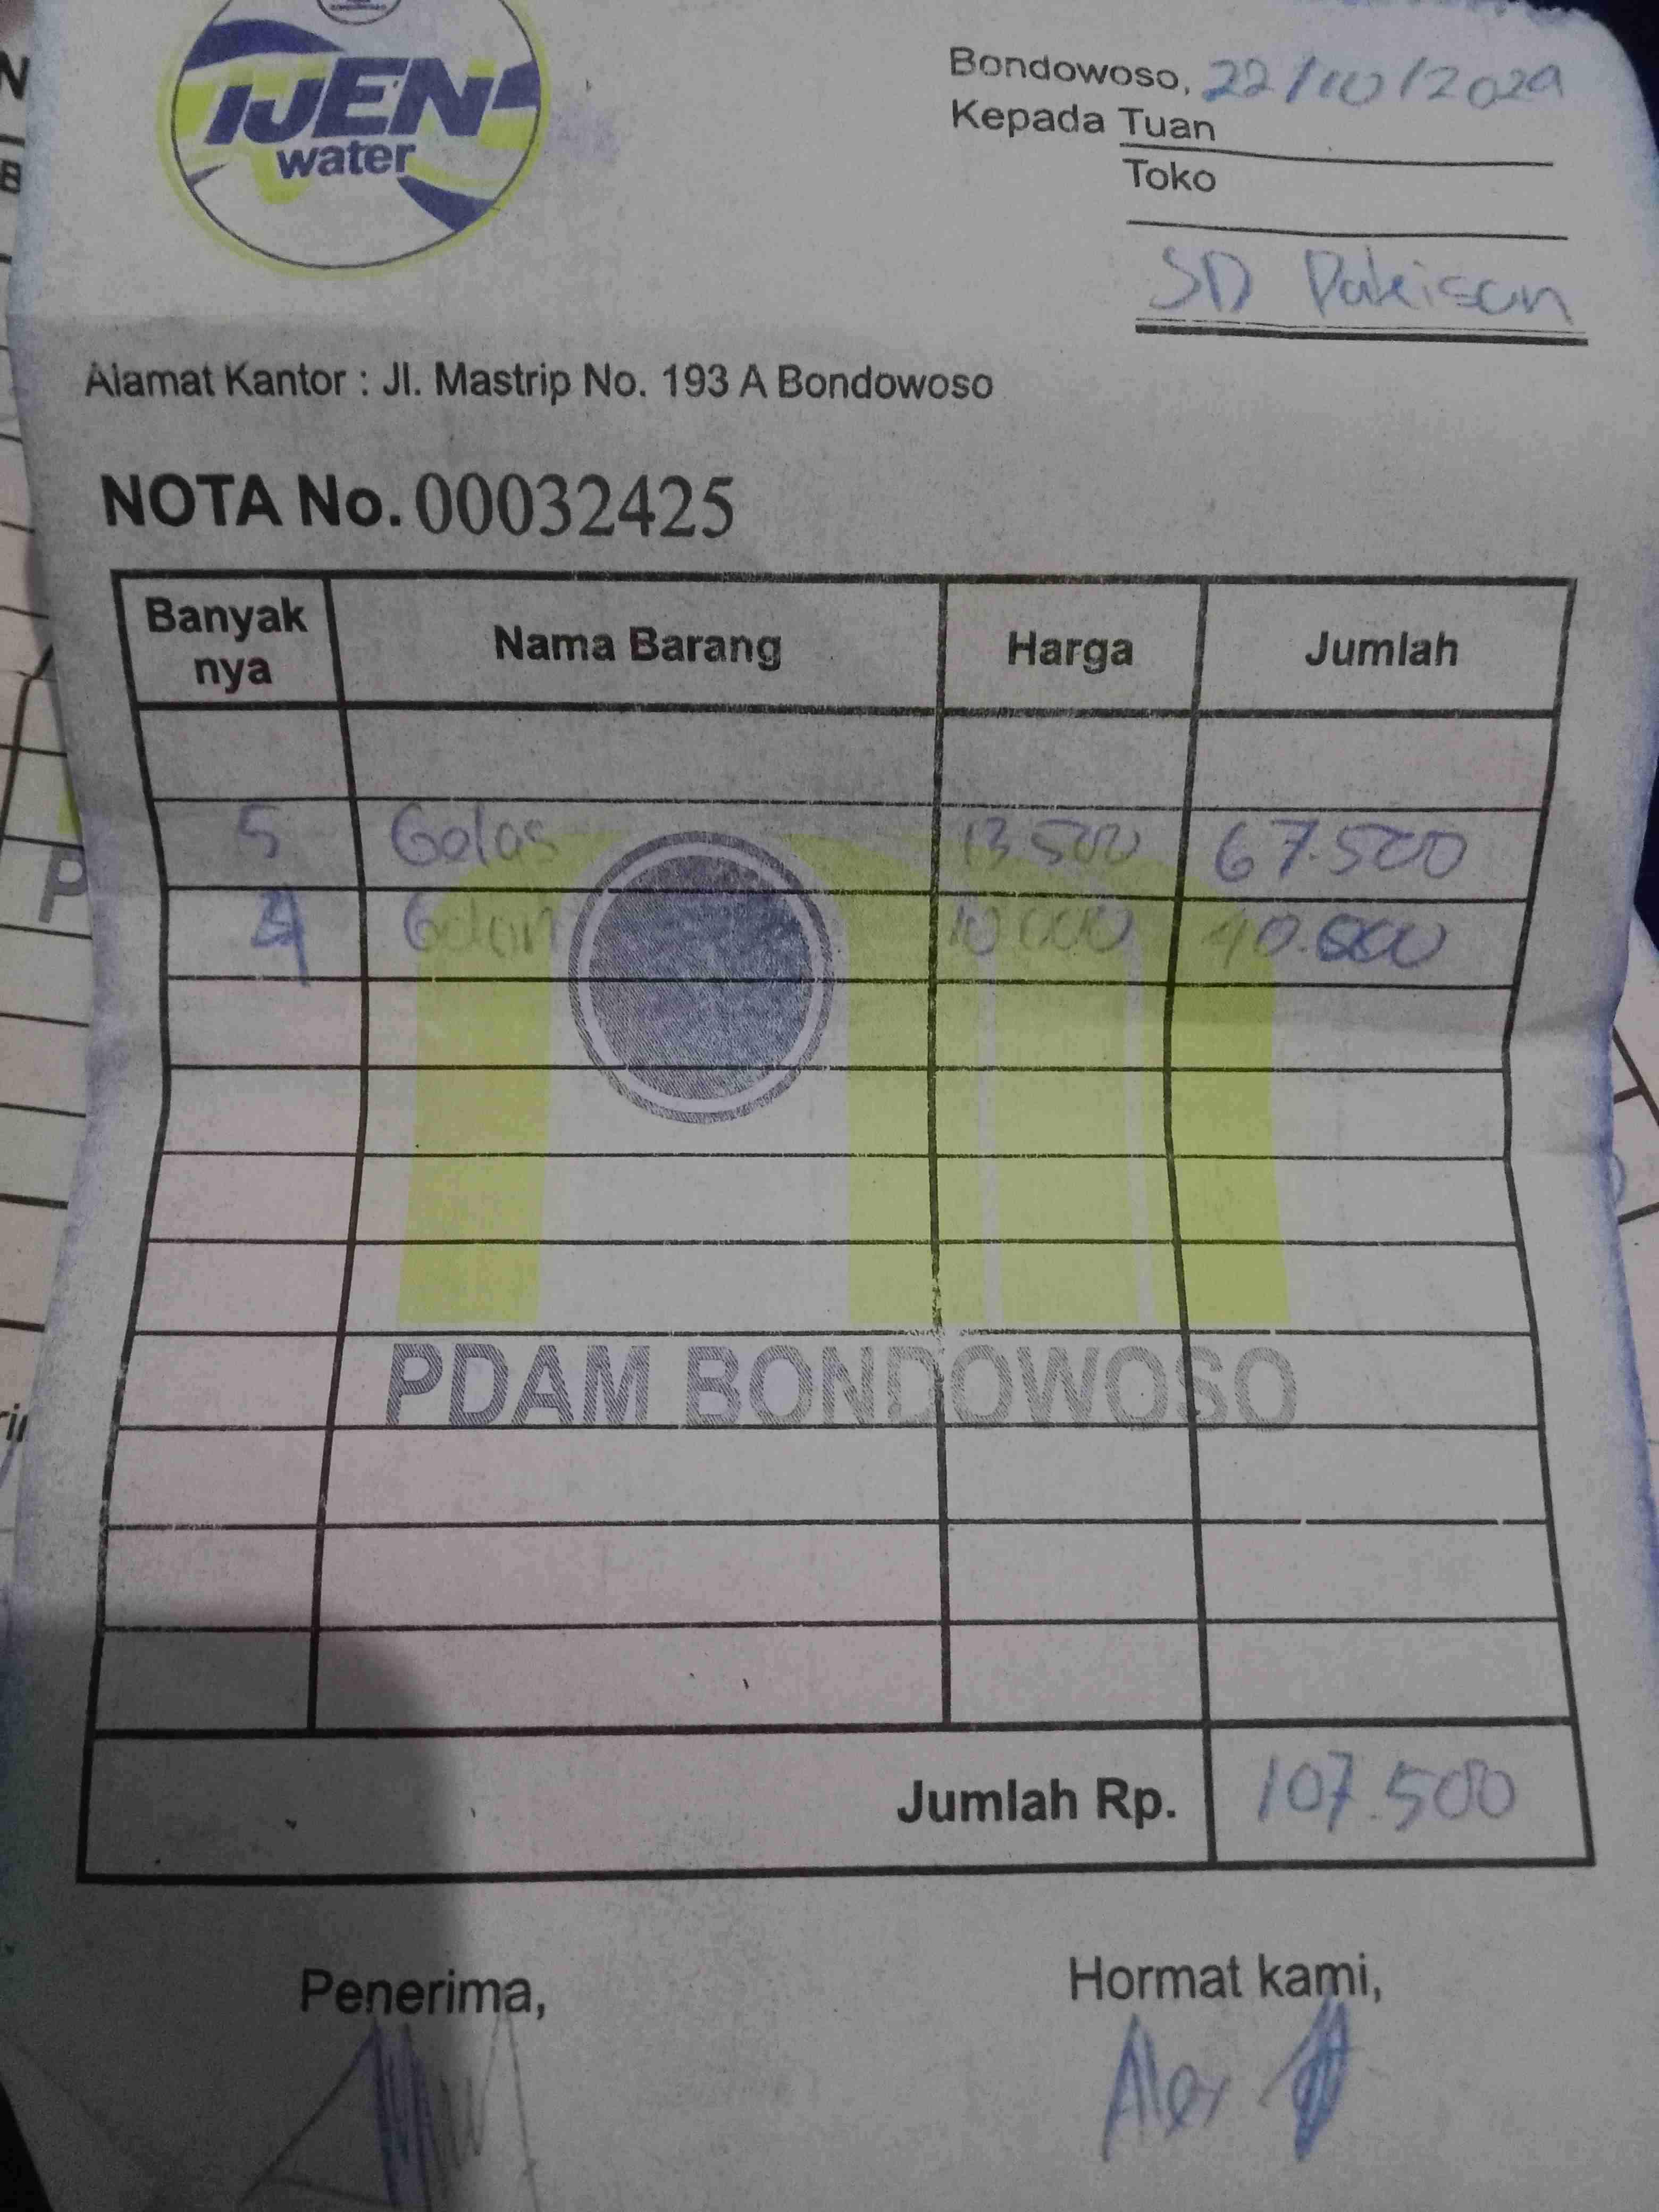 IJEN
water
Bondowoso, 22/10/2024
Kepada Tuan
Toko
SD Pakisan
Alamat Kantor : Jl. Mastrip No. 193 A Bondowoso
NOTA No. 00032425
Banyak nya Nama Barang Harga Jumlah
5 Gelas 13 500 67.500
4 Galon 10 000 40.000
PDAM BONDOWOSO
Jumlah Rp. 107.500
Penerima, Hormat kami,
Alex